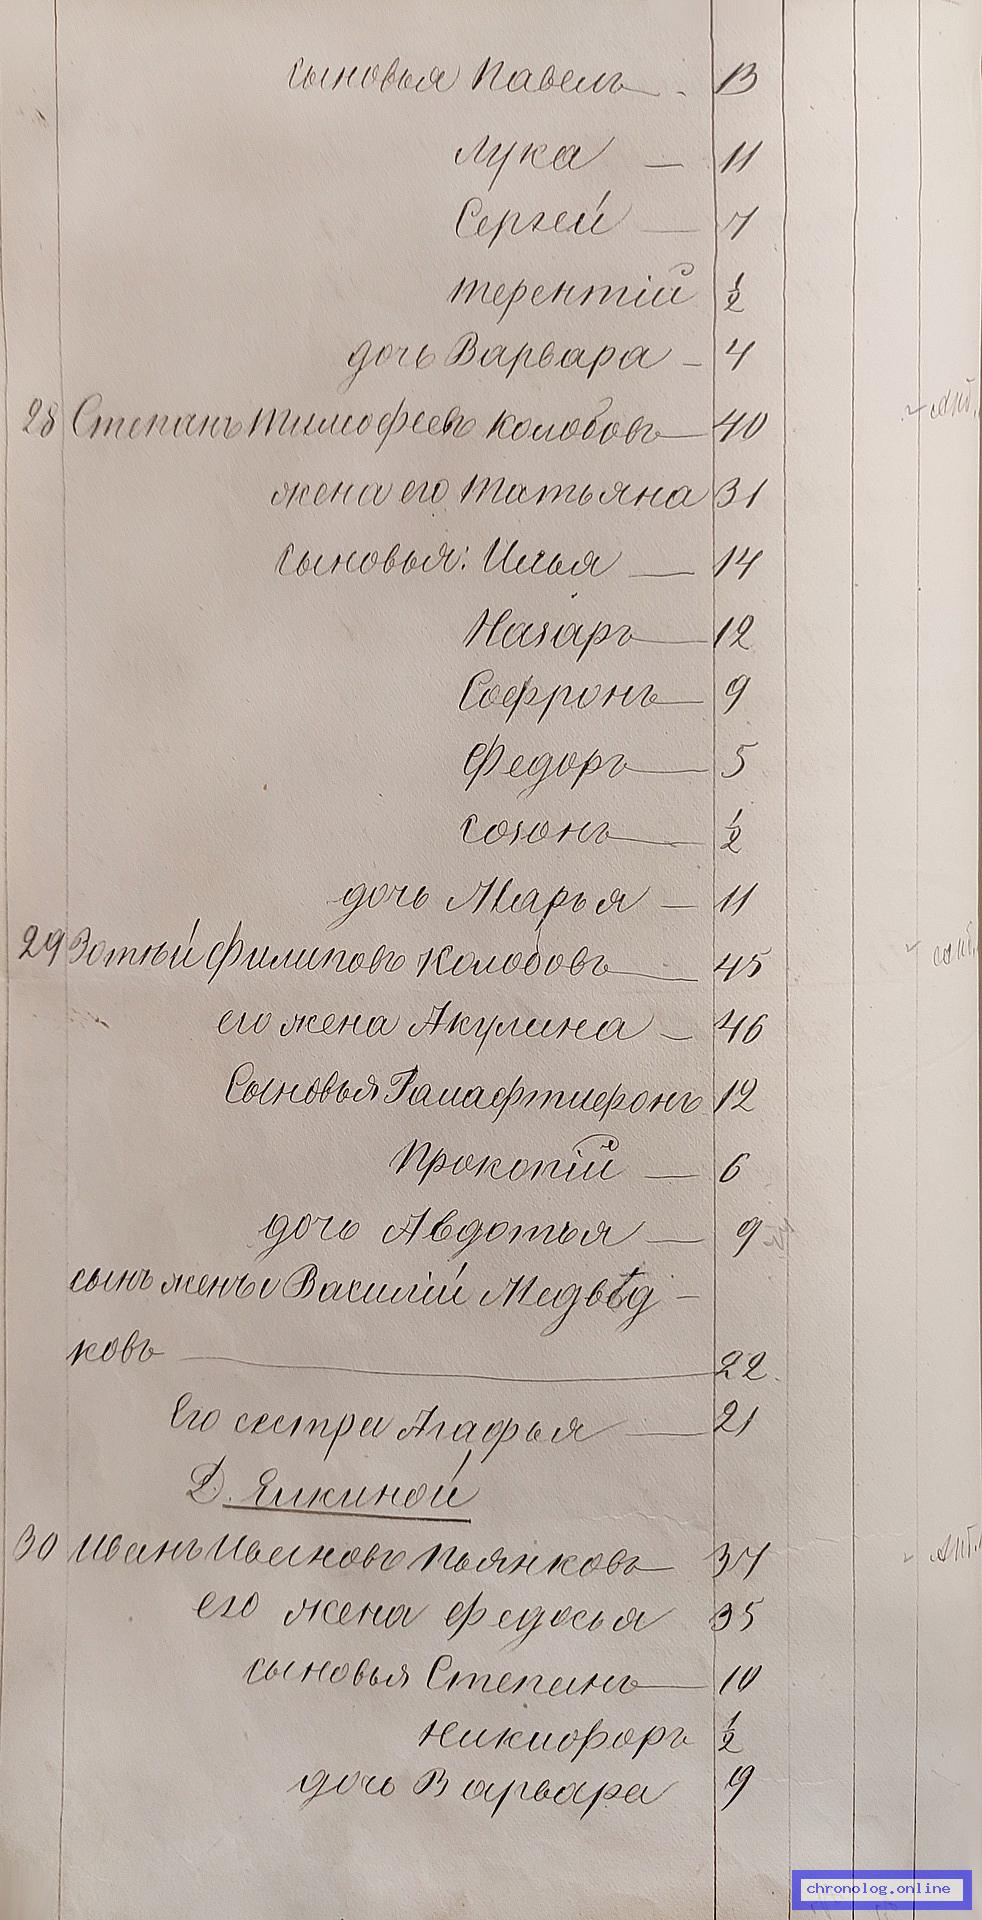 сыновья Павелъ 13
Лука — 11
Сергей — 7
Терентій 1/2
дочь Варвара — 4
28 Степанъ Тимофеевъ Колобовъ 40
жена его Татьяна 31
сыновья: Илья — 14
Назаръ 12
Софронъ 9
Федоръ 5
Созонъ 1/2
дочь Марья — 11
29 Зотѣй Филиповъ Колобовъ 45
его жена Акулина — 46
Сыновья 12
Прокопій — 6
дочь Авдотья — 9
сынъ жены Василій Медвѣд-
ковъ 22.
Его сестра Агафья — 21
Д. Ялкиной
30 Иванъ Ивановъ Пьянковъ 37
его жена Федосья 35
сыновья Степанъ 10
Никифоръ 1/2
дочь Варвара 9
chronolog.online